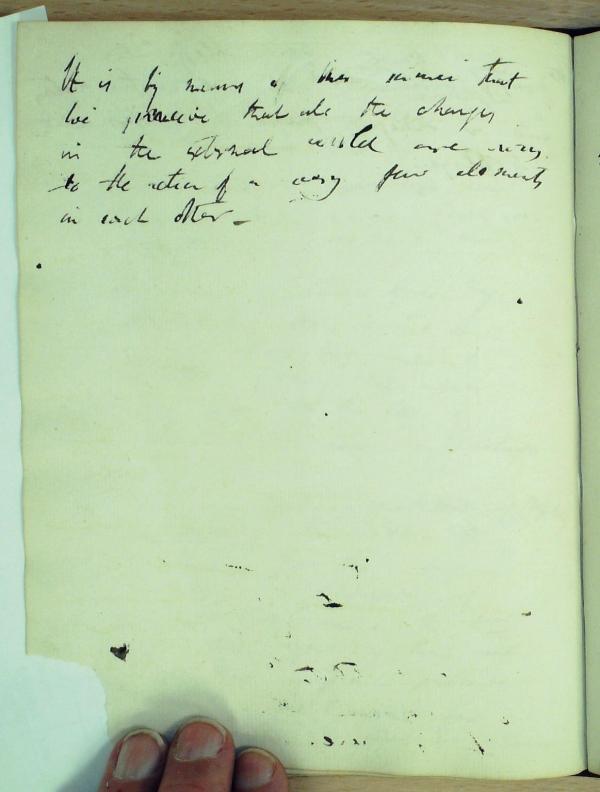 It is by means of this science that
we perceive that all the changes
in the external world are owing
to the action of a very few elements
on each other –